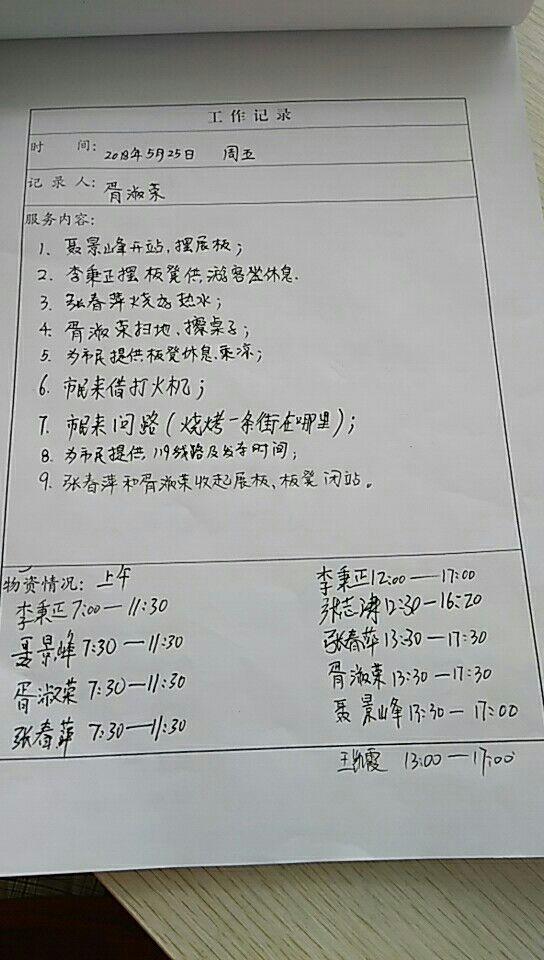 工作记录
时 间: 2018年5月25日 周五
记录人: 胥淑荣
服务内容:
1. 聂景峰开站,摆展板;
2. 李秉正摆板凳供游客坐休息.
3. 张春萍烧好热水;
4. 胥淑荣扫地、擦桌子;
5. 为市民提供板凳休息、乘凉;
6. 市民来借打火机;
7. 市民来问路(烧烤一条街在哪里);
8. 为市民提供119线路及发车时间;
9. 张春萍和胥淑荣收起展板、板凳闭站。
物资情况: 上午
李秉正 7:00—11:30
聂景峰 7:30—11:30
胥淑荣 7:30—11:30
张春萍 7:30—11:30
李秉正 12:00—17:00
张志涛 12:30-16:20
张春萍 13:30—17:30
胥淑荣 13:30—17:30
聂景峰 13:30—17:00
王凯霞 13:00—17:00